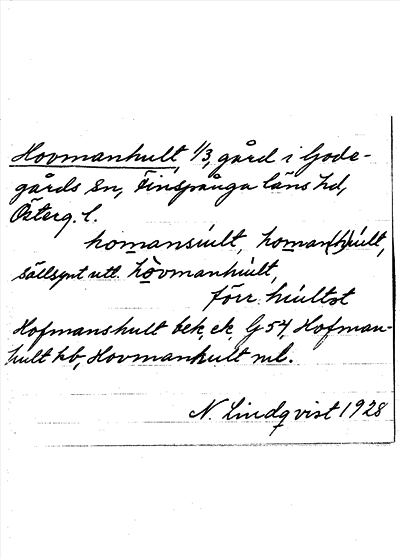 Hovmanhult, 1/3, gård i Gode-
gårds sn, Finspånga läns hd,
Österg. l.
homansúult, homan(h)úult,
sällspt utt. hovmanhúult,
förr húultst
Hofmanshult bek, ek, G 54, Hofman-
hult kb, Hovmanhult ml.
N. Lindqvist 1928